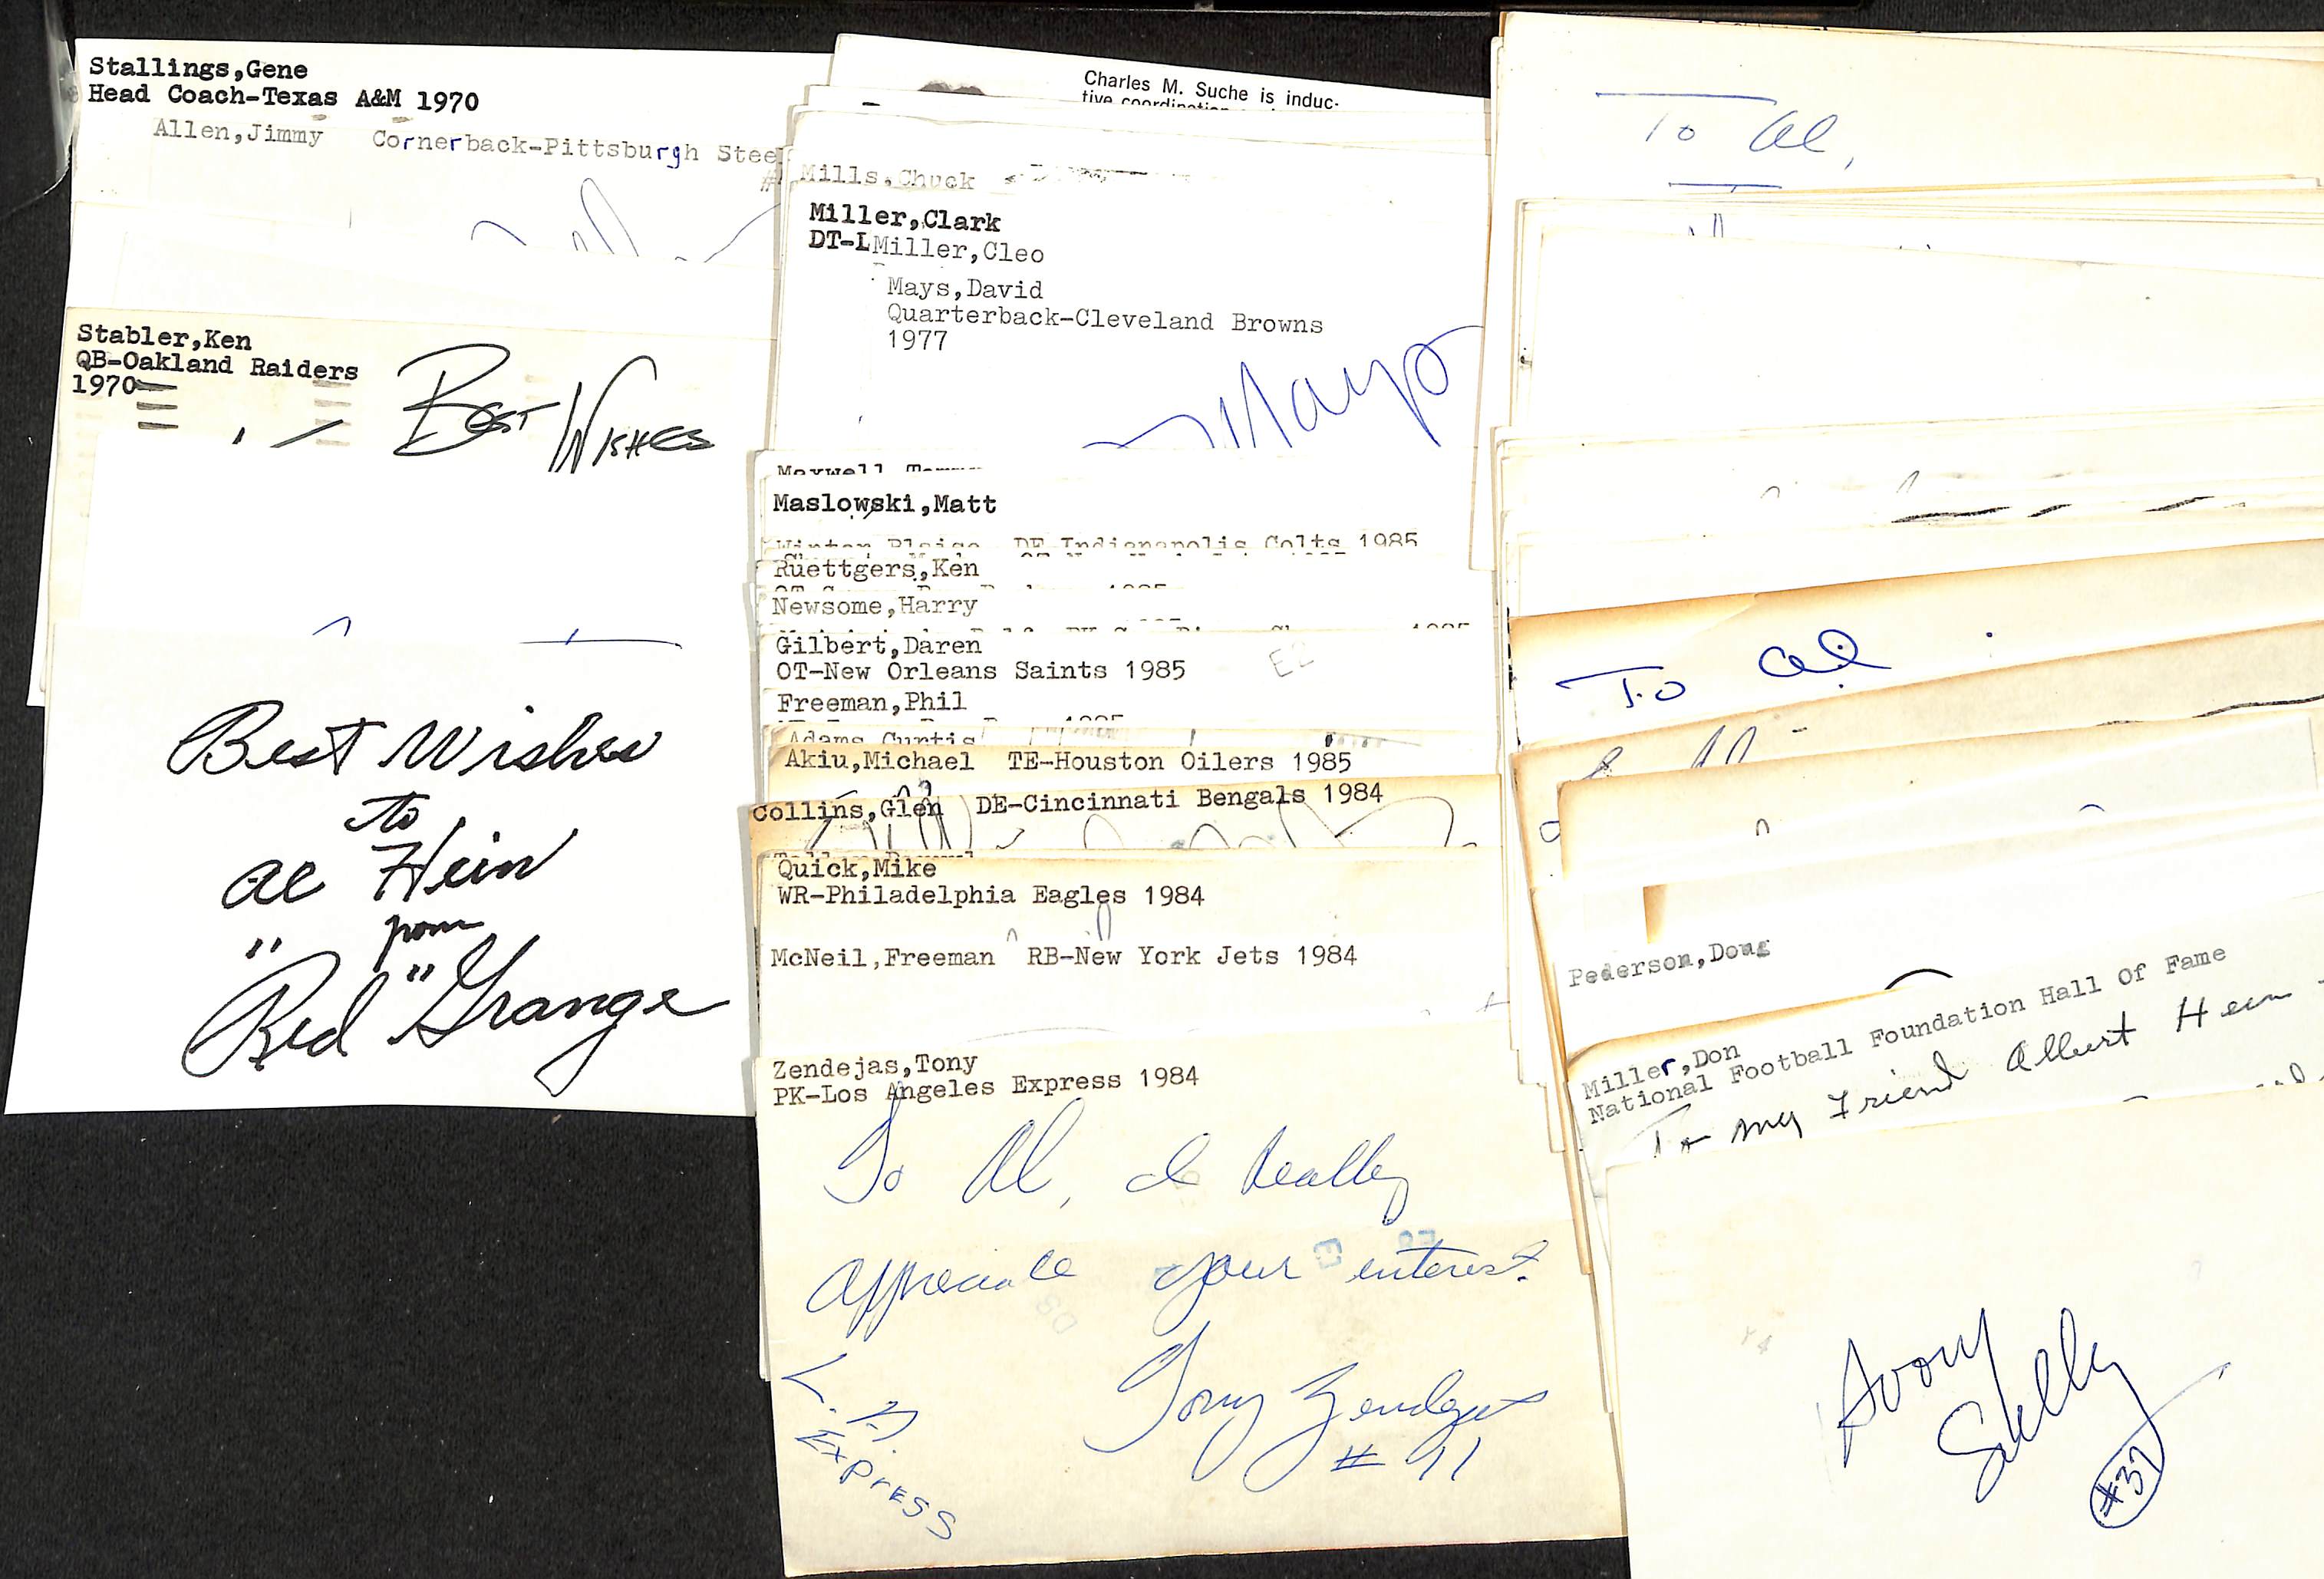 Stallings,Gene
Head Coach-Texas A&M 1970
Allen,Jimmy Cornerback-Pittsburgh Stee
#
Stabler,Ken
QB-Oakland Raiders
1970
Best Wishes
Best Wishes
to
Al Hein
from
"Red" Grange
Charles M. Suche is induc-
tive coordination
Mills,Chuck
Miller,Clark
DT-L
Miller,Cleo
Mays,David
Quarterback-Cleveland Browns
1977
Mays
Maxwell
Maslowski,Matt
DE Indianapolis Colts 1985
Ruettgers,Ken
Newsome,Harry
1985
Gilbert,Daren
OT-New Orleans Saints 1985
E2
Freeman,Phil
1985
Adams Curtis
Akiu,Michael TE-Houston Oilers 1985
Collins,Glen DE-Cincinnati Bengals 1984
Quick,Mike
WR-Philadelphia Eagles 1984
McNeil,Freeman RB-New York Jets 1984
Zendejas,Tony
PK-Los Angeles Express 1984
To Al, I really
appreciate your interest.
Tony Zendejas
#11
L.A.
Express
To Al,
To Al
Pederson,Doug
Miller,Don
National Football Foundation Hall Of Fame
To my Friend Albert Hein
#37